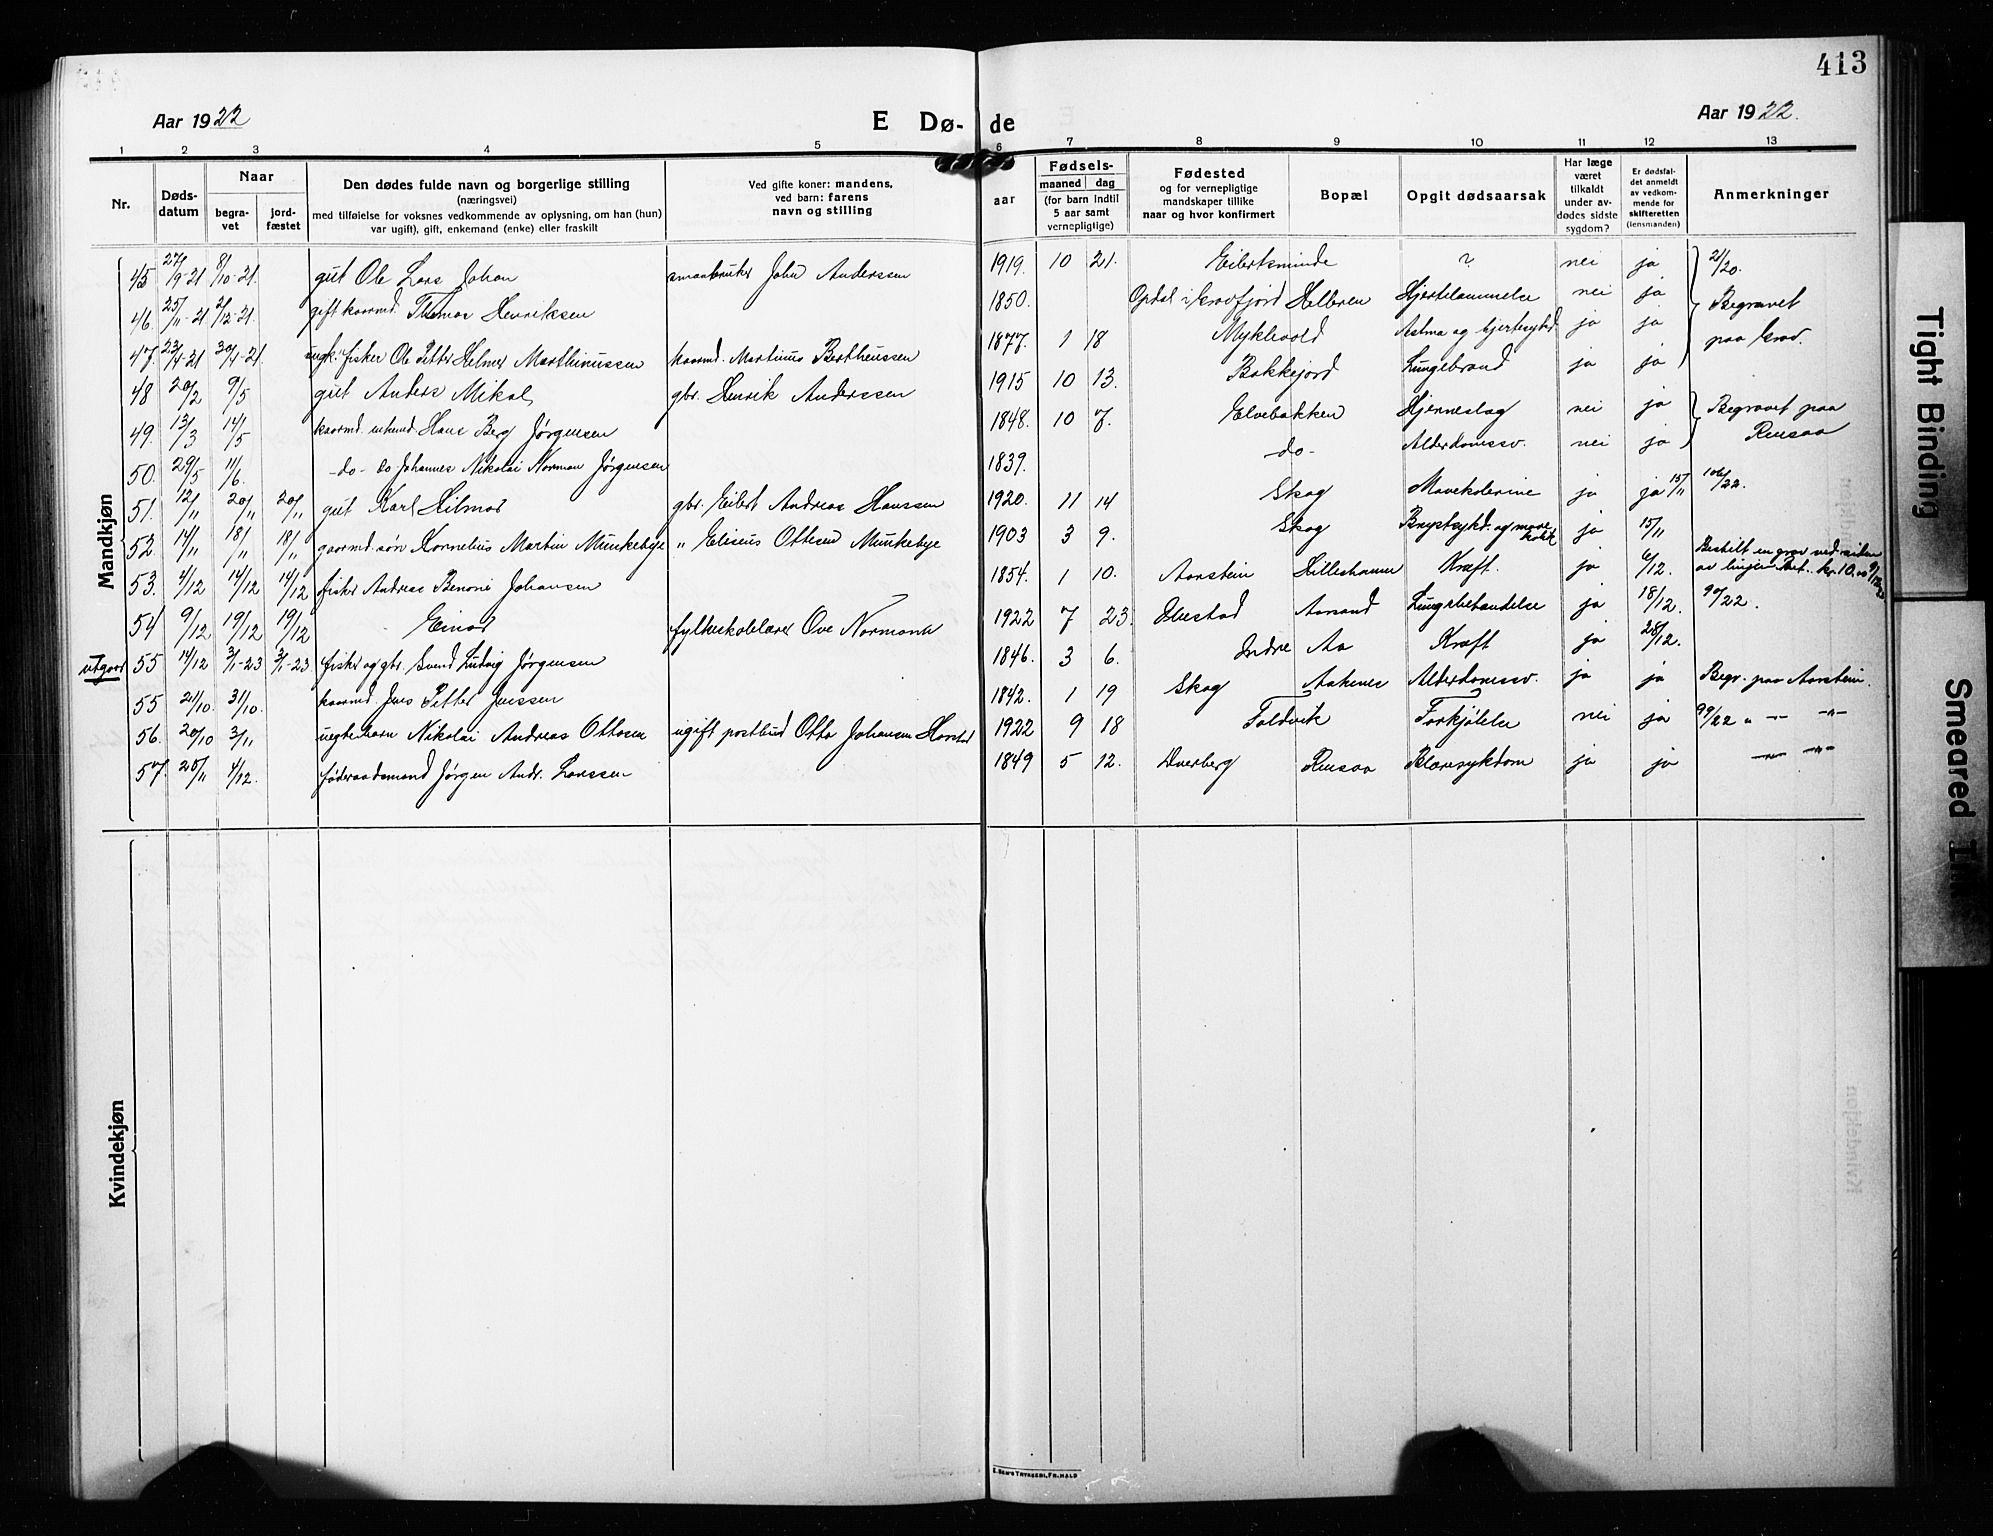 413
Aar 1922 E Dø- de Aar 1922.
1 2 3 4 5 6 7 8 9 10 11 12 13
Nr. Døds-datum Naar begra-vet jord-fæstet Den dødes fulde navn og borgerlige stilling (næringsvei) med tilføielse for voksnes vedkommende av oplysning, om han (hun) var ugift), gift, enkemand (enke) eller fraskilt Ved gifte koner: mandens, ved barn: farens navn og stilling aar Fødsels- maaned dag (for barn indtil 5 aar samt vernepligtige) Fødested og for vernepligtige mandskaper tillike naar og hvor konfirmert Bopæl Opgit dødsaarsak Har læge været tilkaldt under av-dødes sidste sygdom? Er dødsfal-det anmeldt av vedkom-mende for skifteretten (lensmanden) Anmerkninger
Mandkjøn
45 27/9-21 8/10-21. gut Ole Lars Johan smaabruker John Anderssen 1919. 10 21. Eilertsminde ? nei ja 2/20.
46. 25/11-21 2/12-21. gift kaarmd. Thomas Henriksen 1850. Opdal i Gravfjord Helleren Hjertelammelse nei ja Begravet
47. 23/4-21 30/4-21. ungk. fisker Ole Petter Helmer Marthinussen kaarmd. Martinus Bertheussen 1877. 1 18 Myklevold Astma og hjertesykd. ja ja paa Grav.
48 20/2 9/5 gut Anders Mikal gbr. Henrik Anderssen 1915 10 13. Bakkejord Lungebrand ja ja
49. 13/3 14/5 kaarmd. enkemd. Hans Berg Jørgensen 1848. 10 7. Elvebakken Hjerneslag nei ja Begravet paa
50. 29/5 11/6. -do- do Johannes Nikolai Norman Jørgensen 1839. -do- Alderdomssv. nei ja Rensaa
51. 12/11 20/11 20/11 gut Karl Hilmar gbr. Eilert Andreas Hanssen 1920. 11 14 Skog Mavekolerine ja ja 15/11 106/22.
52. 14/11 18/11 18/11 gaarmd. søn Kornelius Martin Munkebye " Eliseus Ottesen Munkebye 1903 3 9. Skog Brystsykd. og mave ja 15/11
53. 4/12 14/12 14/12 fisker Andreas Benoni Johansen 1854. 1 10. Aarstein Hilleshamn Kræft. ja 6/12. Bestilt en grav ved siden
54 9/12 19/12 19/12 Einar fylkesskolelærer Ove Normann 1922 7 23 Ibestad Aarsand Lungebetændelse ja 18/12. 90/22.
utgaar 55 14/12 3/1-23 3/1-23 fisker og gbr. Svend Ludvig Jørgensen 1846. 3 6. Indre Aa Kræft ja 28/12.
55 21/10. 31/10. kaarmd. Jens Petter Jenssen 1842. 1 19 Skog Aakenes Alderdomssv. ja ja Begr. paa Aarstein.
56. 20/10 3/11 uegte barn Nikolai Andreas Ottosen ugift postbud Otto Johansen Harstad 1922 9 18 Foldvik Forkjølelse nei ja 99/22 " -"- -"-
57. 25/11 4/12. føderaadsmand Jørgen Andr. Larssen 1849 5 12. Dverberg Rensaa Blæresykdom ja ja -"- -"-
Kvindekjøn
E. SEM'S TRYKKERI, FR.HALD
Tight Binding
Smeared Ink